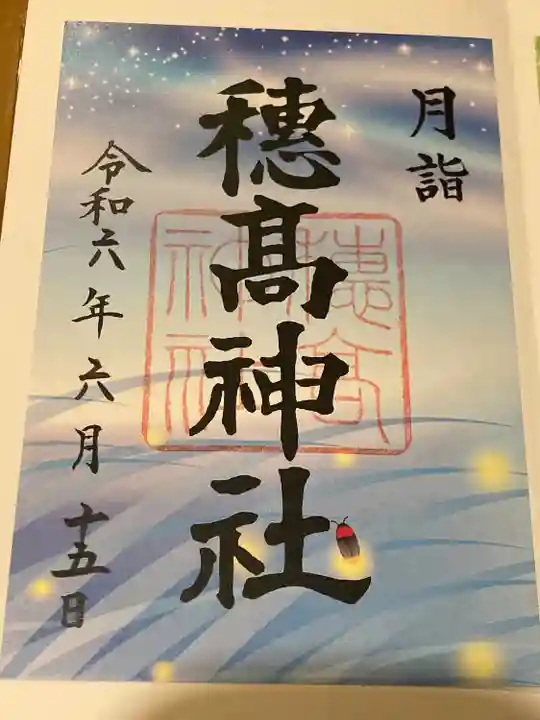 月詣
穗髙神社
令和六年六月十五日
穗髙
神社